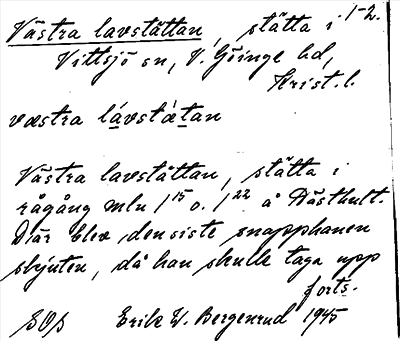 Västra lavstättan, stätta i 1-2.
Vittsjö sn, V. Göinge hd,
Krist. l.
væstra lávstæ̀tan
Västra lavstättan, stätta i
rågång mln 1¹⁵ o. 1²² å Hästhult.
Där blev den siste snapphanen
skjuten, då han skulle taga upp
forts.
Erik W. Bergenrud 1945